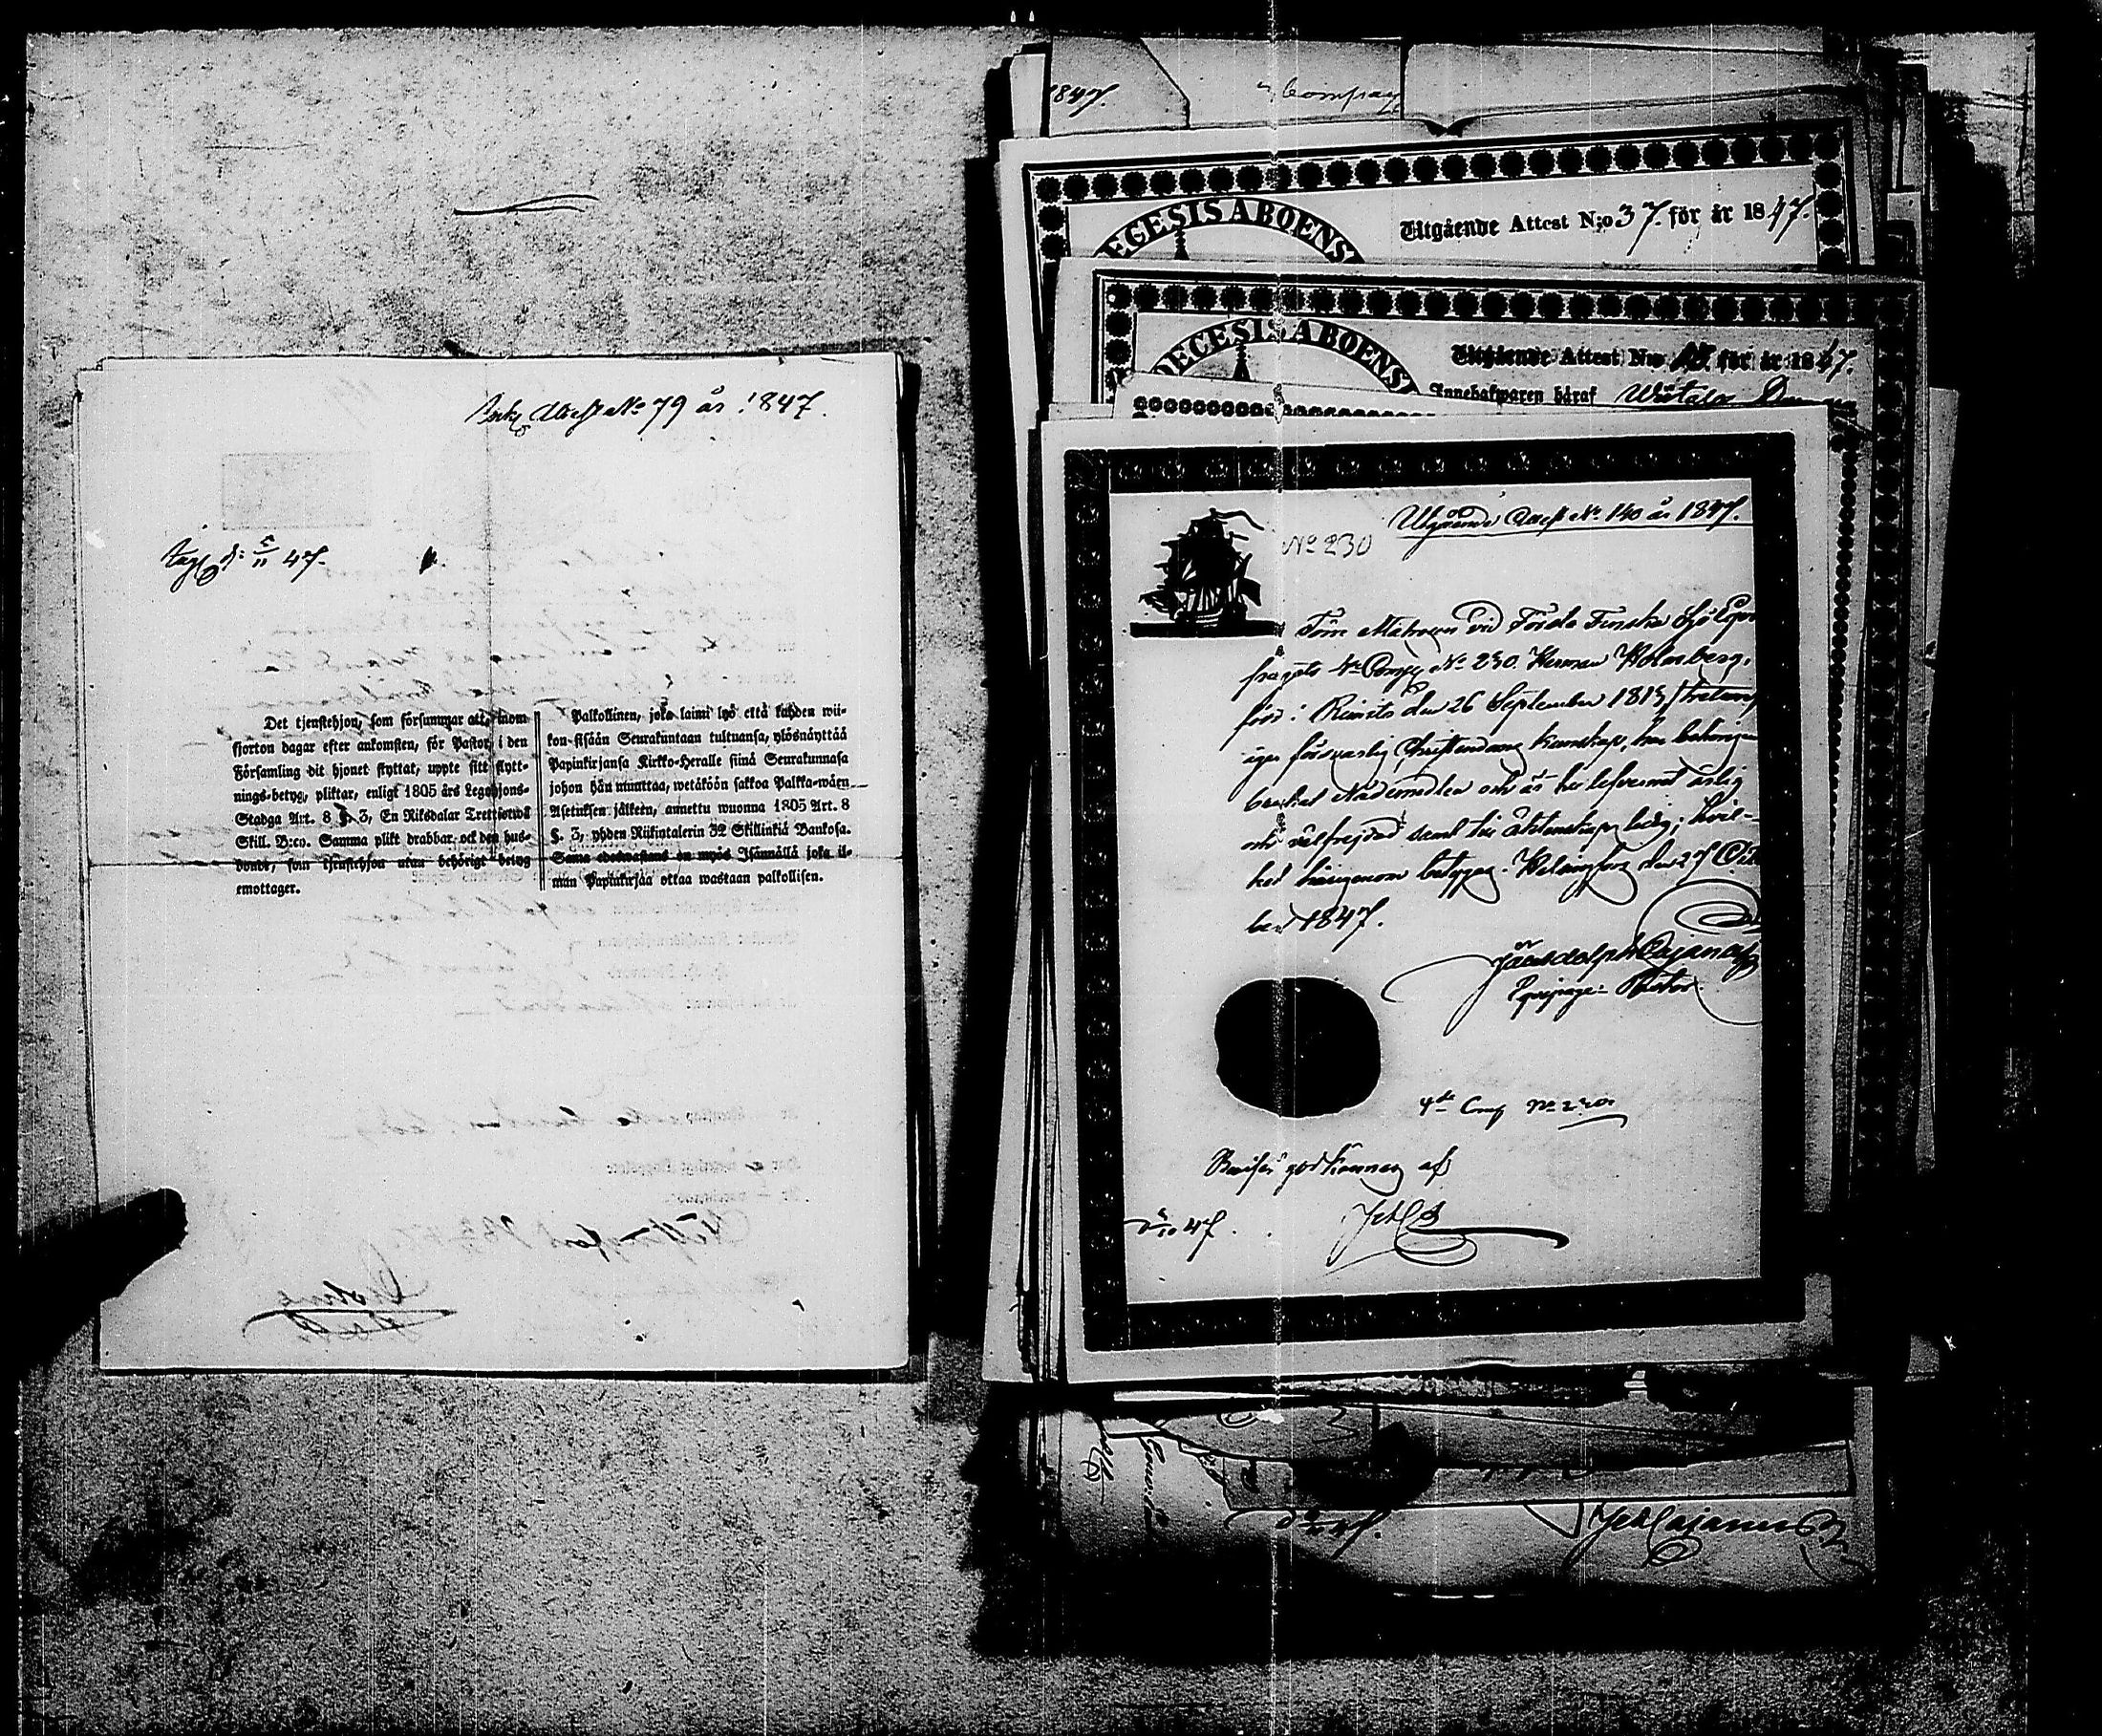 Ink. Attest No 79 år 1847.
47.
Det tjenstehjon, som försummar att, inom
fjorton dagar efter ankomsten, för Pastor i den
Församling dit hjonet flyttat, uppte sitt flytt-
nings-betyg, pliktar, enligt 1805 års Legohjons-
Stadga Art. 8 §. 3, En Riksdalar Trettiotwå
Skill. B:co. Samma plikt drabbar ock den hus-
bonde, som tjenstehjon utan behörigt betyg
emottager.
Palkollinen, joka laimi lyö että kahden wii-
kon sisään Seurakuntaan tultuansa, ylösnäyttää
Papinkirjansa Kirkko-Herralle siinä Seurakunnasa
johon hän muuttaa, wetäköön sakkoa Palkka-wäen
Asetuksen jälkeen, annettu wuonna 1805 Art. 8
§. 3, yhden Riikintalerin 32 Skillinkiä Bankosa.
Sama edeswastaus on myös Isännällä joka il-
man Papinkirjaa ottaa wastaan palkollisen.
1847.
Compag
ECESIS ABOENS
Utgående Attest N;o 37. för år 1847.
DECESIS ABOENS
Utgående Attest N:o för år 1847.
Innehafwaren häraf
No 230
Utgående Attest No. 140 år 1847.
Förre Matrosen vid Första Finska Sjö Equi
pagets 4de Comp. No 230. Herman Holmberg,
född i Rimito den 26 September 1813 /tretton/
äger försvarlig Christendoms kunskap, har behörigen
brukat Nådemedlen och är till lefvernet ärlig
och välfrejdad samt till äktenskap ledig; hvil-
ket härigenom betygas. Helsingfors den 27 Octo
ber 1847.
Jac. Adolph Cajanus
Equipage-Pastor.
4de Comp No 230
godkännes af
47.
JACajanus